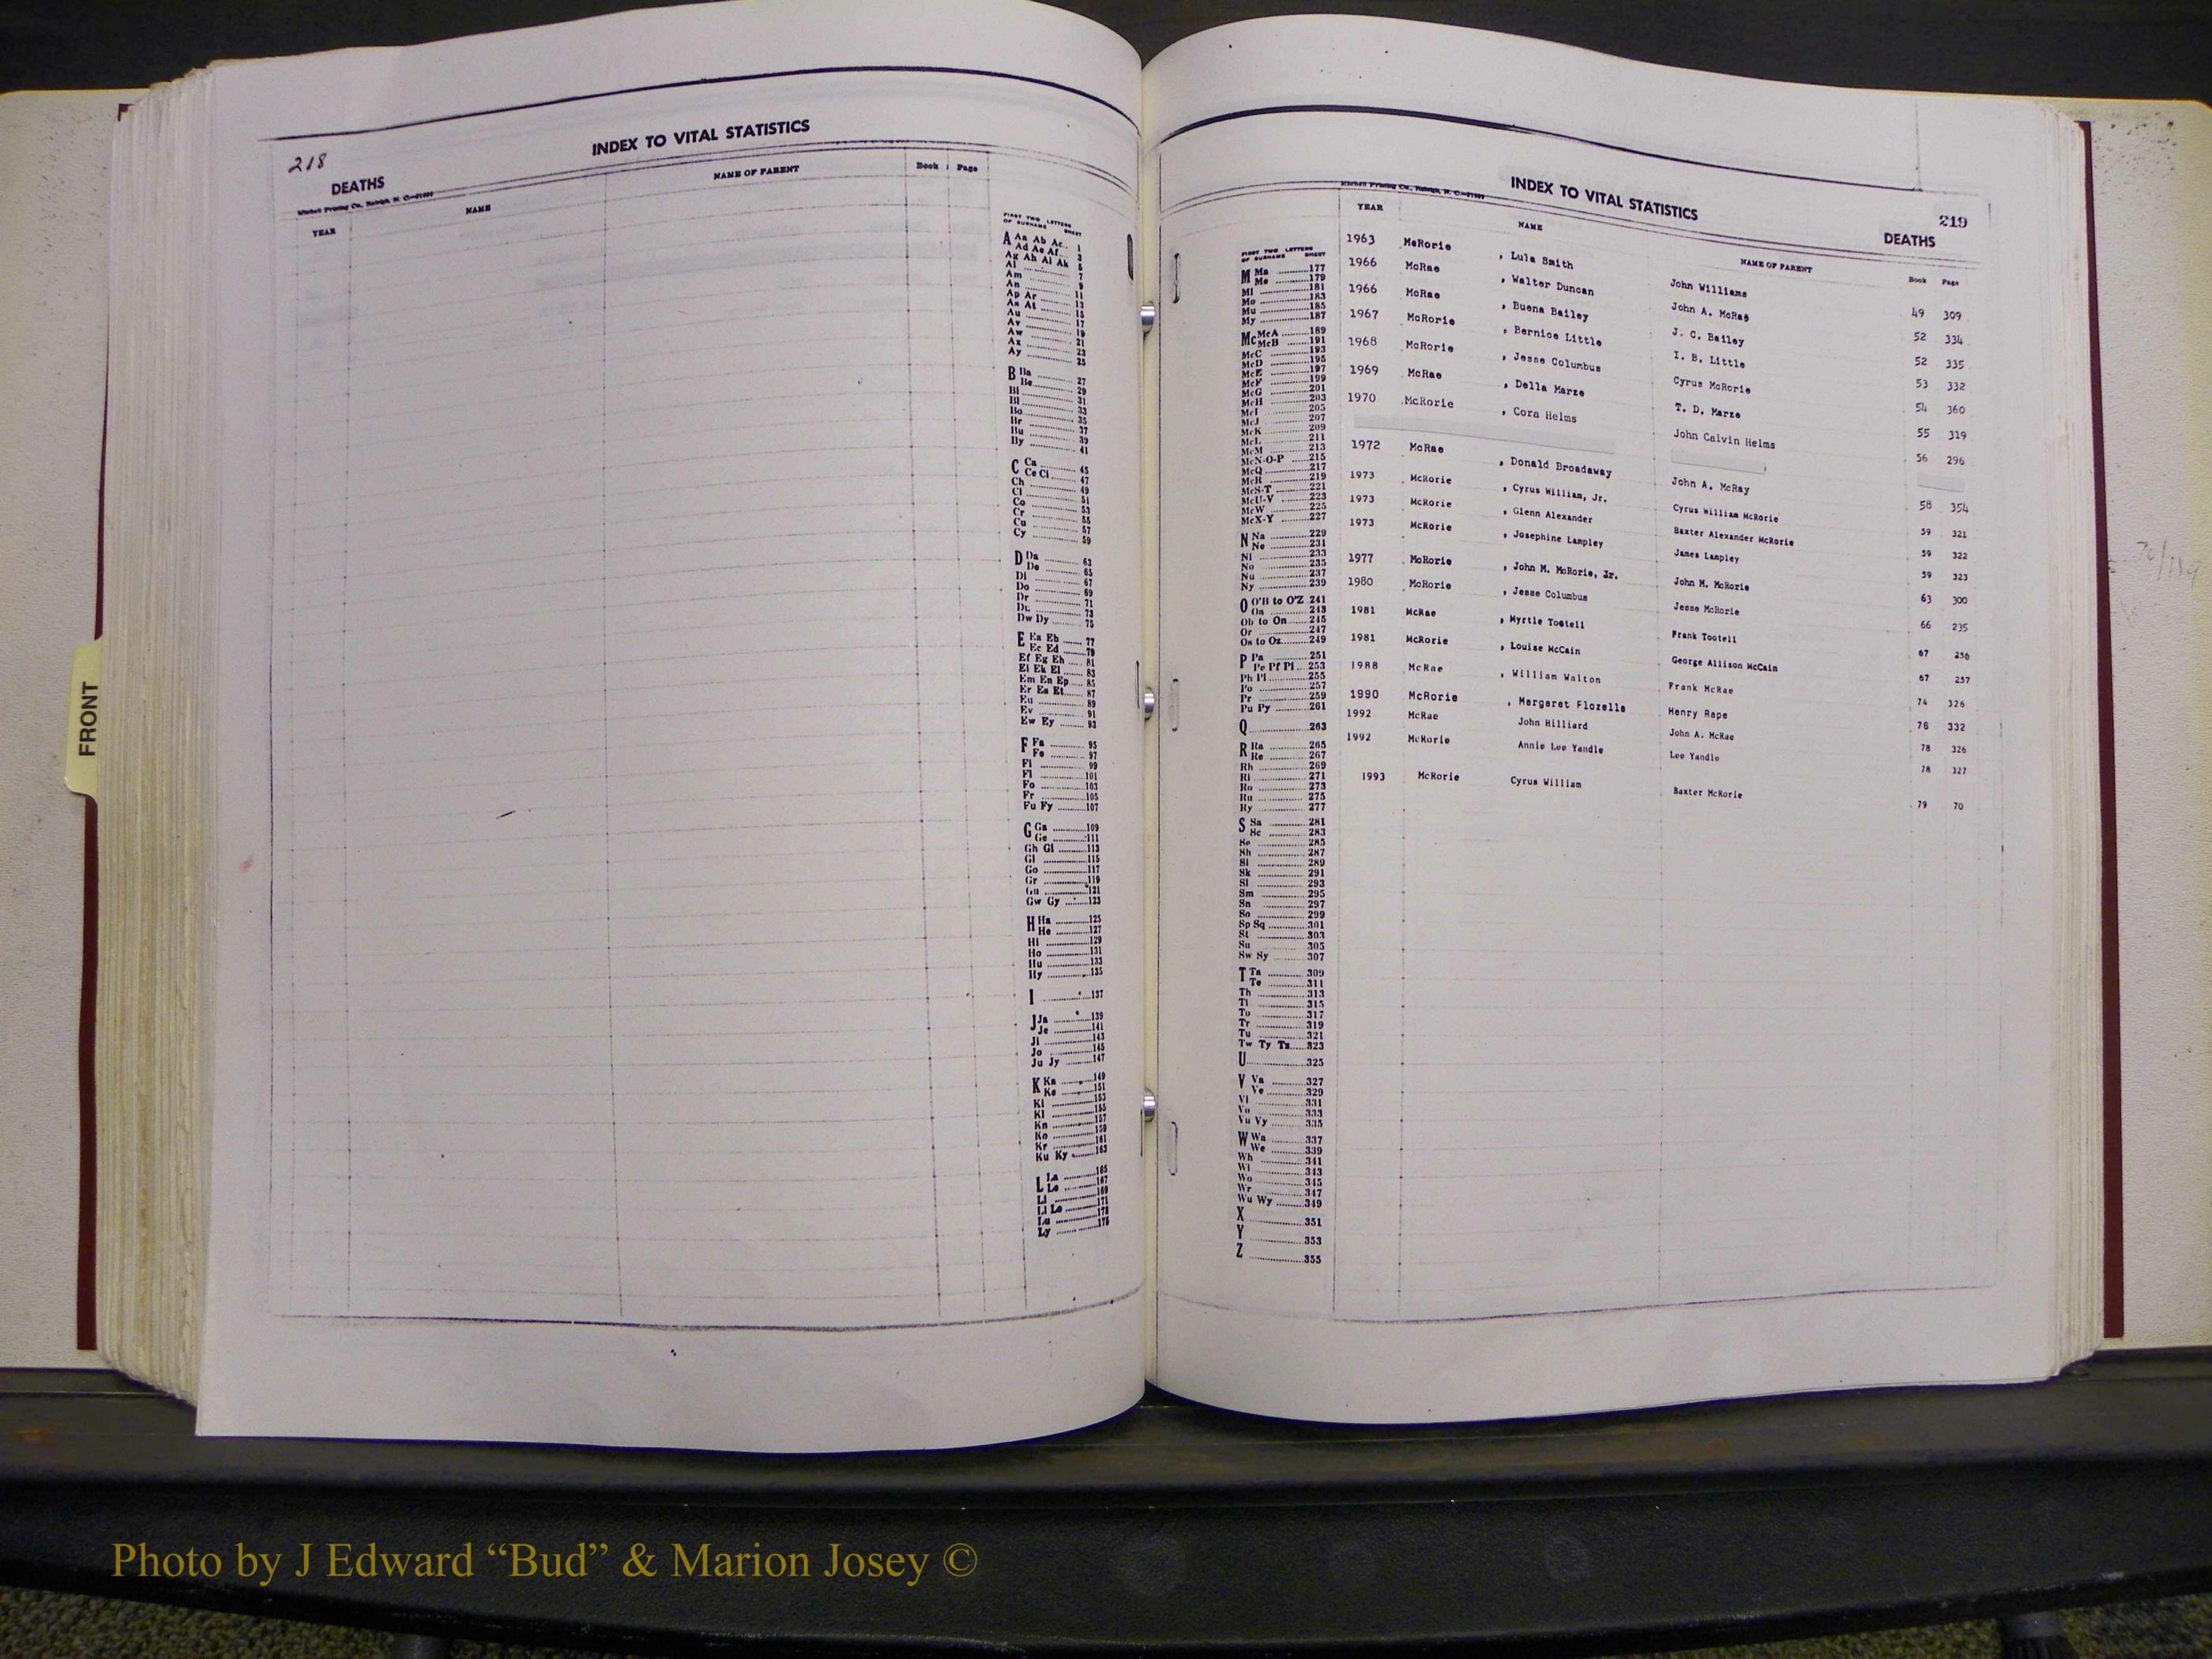 218
INDEX TO VITAL STATISTICS
DEATHS
Mitchell Printing Co., Raleigh, N. C.
YEAR NAME NAME OF PARENT Book Page
FIRST TWO LETTERS OF SURNAME SHEET
A Aa Ab Ac 1
Ad Ae Af 3
Ag Ah Ai Ak 5
Al 7
Am 9
An 11
Ap Ar 13
As At 15
Au 17
Av 19
Aw 21
Ax 23
Ay 25
B Ba 27
Be 29
Bi 31
Bl 33
Bo 35
Br 37
Bu 39
By 41
C Ca 45
Ce Ci 47
Ch 49
Cl 51
Co 53
Cr 55
Cu 57
Cy 59
D Da 63
De 65
Di 67
Do 69
Dr 71
Du 73
Dw Dy 75
E Ea Eb 77
Ec Ed 79
Ef Eg Eh 81
Ei Ek El 83
Em En Ep 85
Er Es Et 87
Eu 89
Ev 91
Ew Ey 93
F Fa 95
Fe 97
Fi 99
Fl 101
Fo 103
Fr 105
Fu Fy 107
G Ga 109
Ge 111
Gh Gi 113
Gl 115
Go 117
Gr 119
Gu 121
Gw Gy 123
H Ha 125
He 127
Hi 129
Ho 131
Hu 133
Hy 135
I 137
J Ja 139
Je 141
Ji 143
Jo 145
Ju Jy 147
K Ka 149
Ke 151
Ki 153
Kl 155
Kn 157
Ko 159
Kr 161
Ku Ky 163
L La 165
Le 167
Li 169
Ll Lo 171
Lu 173
Ly 175
FRONT
INDEX TO VITAL STATISTICS
219
DEATHS
Mitchell Printing Co., Raleigh, N. C.
YEAR NAME NAME OF PARENT Book Page
FIRST TWO LETTERS OF SURNAME SHEET
M Ma 177
Me 179
Mi 181
Mo 183
Mu 185
My 187
Mc McA 189
McB 191
McC 193
McD 195
McE 197
McF 199
McG 201
McH 203
McI 205
McJ 207
McK 209
McL 211
McM 213
McN-O-P 215
McQ 217
McR 219
McS-T 221
McU-V 223
McW 225
McX-Y 227
N Na 229
Ne 231
Ni 233
No 235
Nu 237
Ny 239
O O'B to O'Z 241
Oa 243
Ob to On 245
Or 247
Os to Oz 249
P Pa 251
Pe Pf Pi 253
Ph Pl 255
Po 257
Pr 259
Pu Py 261
Q 263
R Ra 265
Re 267
Rh 269
Ri 271
Ro 273
Ru 275
Ry 277
S Sa 281
Sc 283
Se 285
Sh 287
Si 289
Sk 291
Sl 293
Sm 295
Sn 297
So 299
Sp Sq 301
St 303
Su 305
Sw Sy 307
T Ta 309
Te 311
Th 313
Ti 315
To 317
Tr 319
Tu 321
Tw Ty Tz 323
U 325
V Va 327
Ve 329
Vi 331
Vo 333
Vu Vy 335
W Wa 337
We 339
Wh 341
Wi 343
Wo 345
Wr 347
Wu Wy 349
X 351
Y 353
Z 355
1963 McRorie , Lula Smith John Williams 49 309
1966 McRae , Walter Duncan John A. McRae 52 334
1966 McRae , Buena Bailey J. C. Bailey 52 335
1967 McRorie , Bernice Little I. B. Little 53 332
1968 McRorie , Jesse Columbus Cyrus McRorie 54 360
1969 McRae , Della Marze T. D. Marze 55 319
1970 McRorie , Cora Helms John Calvin Helms 56 296
1972 McRae , Donald Broadaway John A. McRay 58 354
1973 McRorie , Cyrus William, Jr. Cyrus William McRorie 59 321
1973 McRorie , Glenn Alexander Baxter Alexander McRorie 59 322
1973 McRorie , Josephine Lampley James Lampley 59 323
1977 McRorie , John M. McRorie, Jr. John M. McRorie 63 300
1980 McRorie , Jesse Columbus Jesse McRorie 66 235
1981 McRae , Myrtle Tootell Frank Tootell 67 256
1981 McRorie , Louise McCain George Allison McCain 67 257
1988 McRae , William Walton Frank McRae 74 326
1990 McRorie , Margaret Flozelle Henry Rape 76 332
1992 McRae John Hilliard John A. McRae 78 326
1992 McRorie Annie Lee Yandle Lee Yandle 78 327
1993 McRorie Cyrus William Baxter McRorie 79 70
Photo by J Edward “Bud” & Marion Josey ©